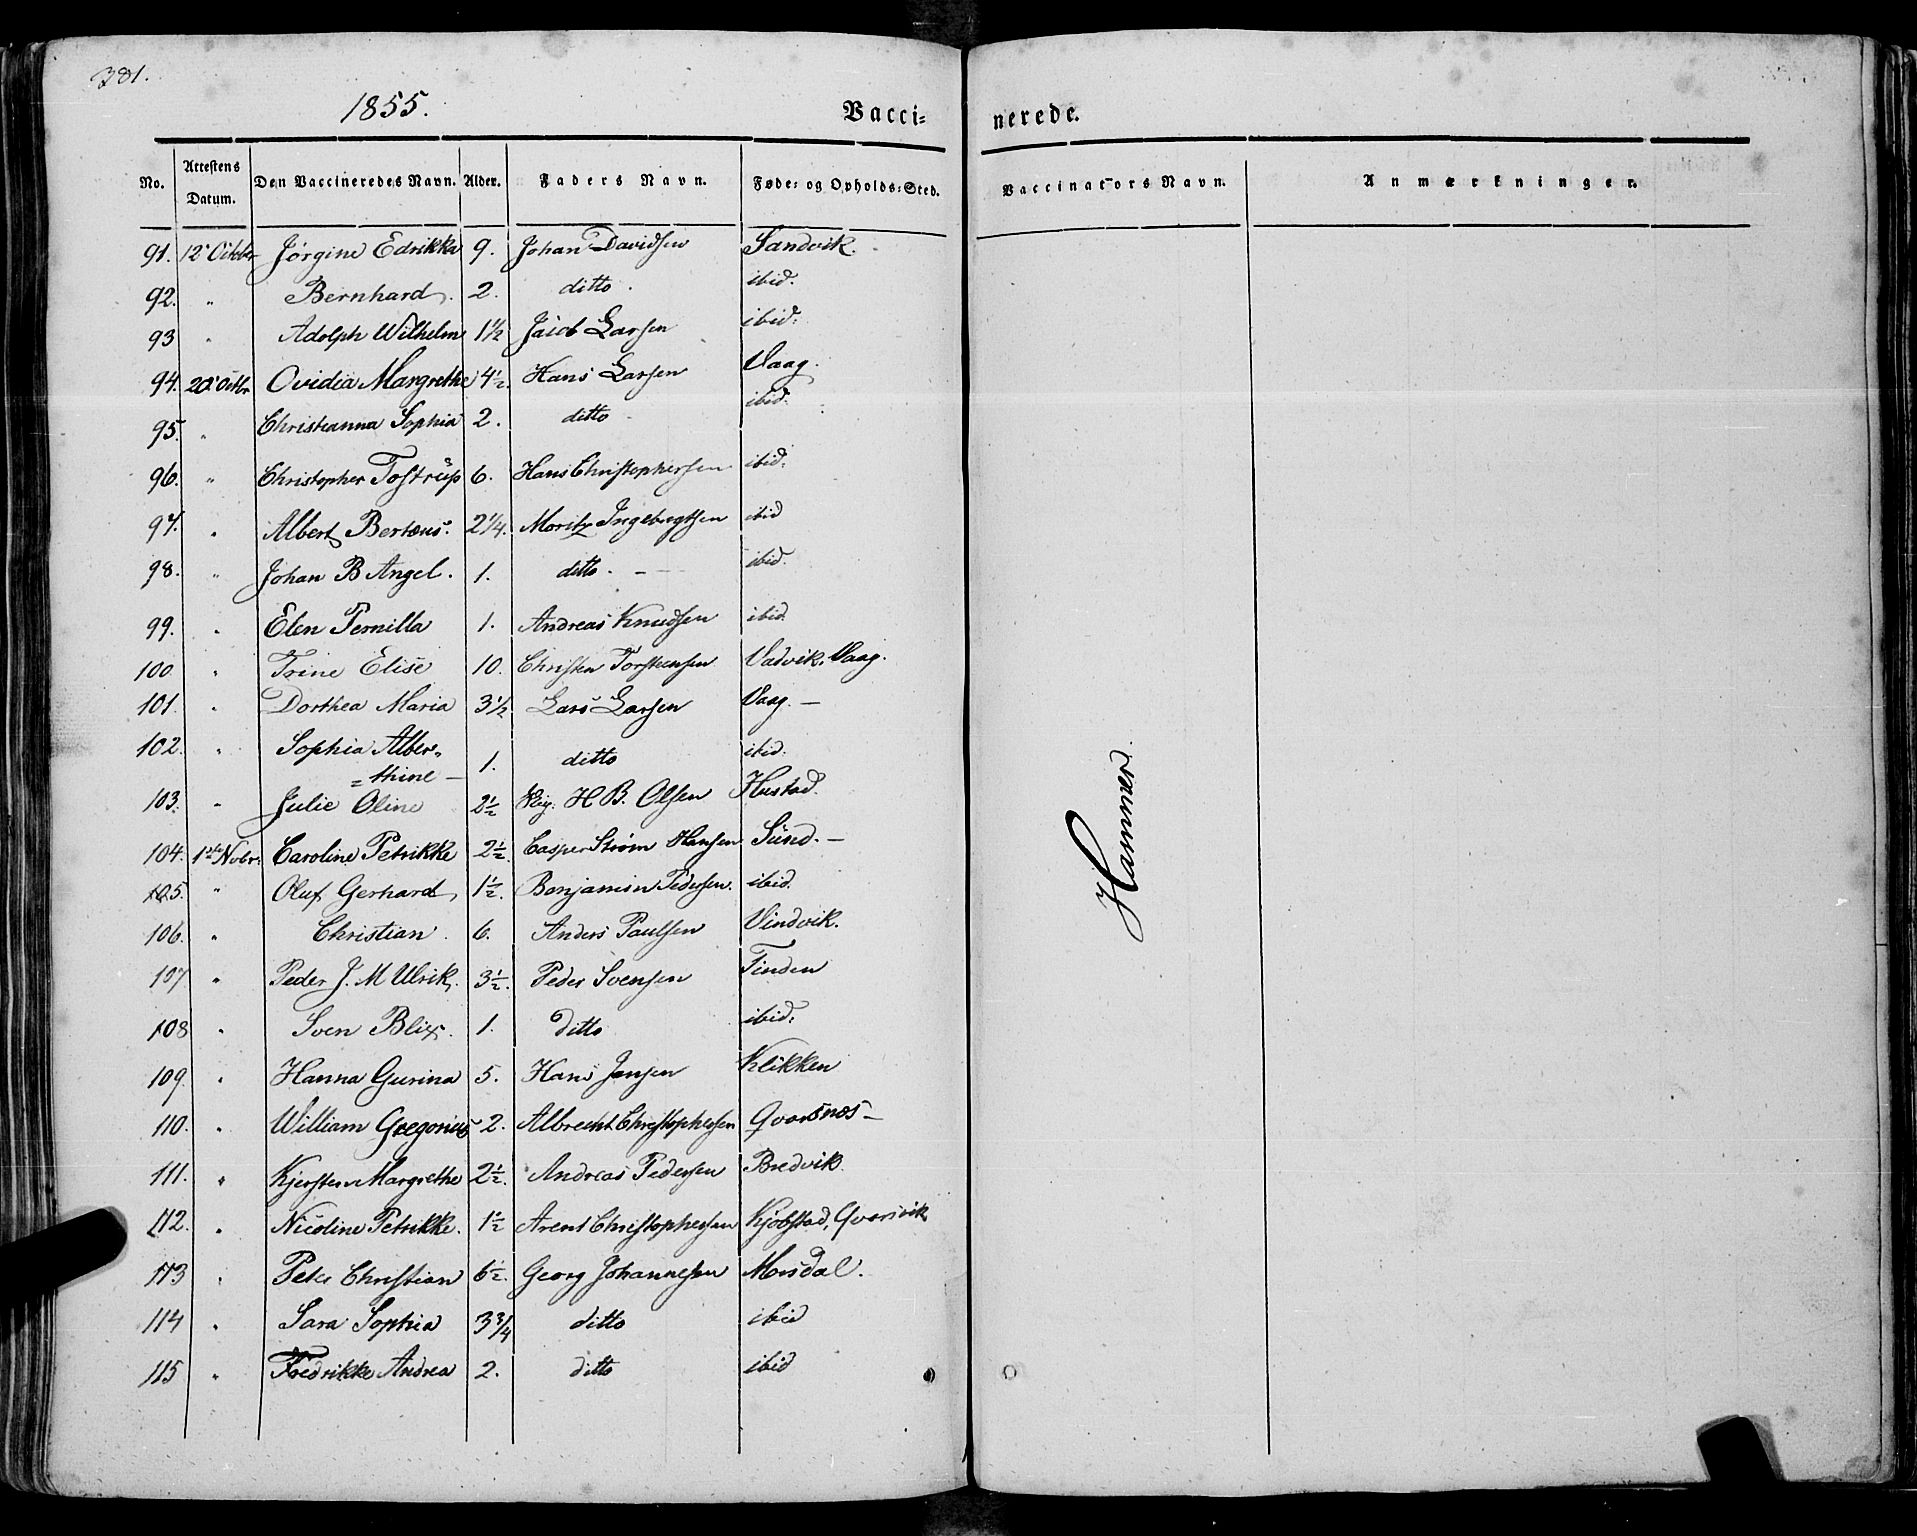 381.
1855.
Vacci-
nerede.
No. Attestens Datum. Den Vaccineredes Navn. Alder. Faders Navn. Føde- og Opholds-Sted. Vaccinators Navn. Anmærkninger.
91. 12 Octobr Jørgine Edrikka 9. Johan Davidsen Sandvik.
92. " Bernhard. 2. ditto. ibid.
93 " Adolph Wilhelm 1 1/2 Jacob Larsen ibid.
94. 20 Octbr Ovidia Margrethe 4 1/2. Hans Larsen Vaag.
95. " Christianna Sophia 2. ditto ibid.
96. " Christopher Tostrup 6. Hans Christophersen ibid.
97. " Albert Bertæus. 2 1/4. Moritz Ingebrigtsen ibid
98. " Johan B Angel. 1. ditto. — ibid.
99. " Elen Pernilla 1. Andreas Knudsen ibid
100 " Trine Elise 10. Christen Torstensen Vadvik, Vaag.
101. " Dorthea Maria 3 1/2 Lars Larsen Vaag. —
102. " Sophia Alber=
=thine — 1. ditto ibid.
103. " Julie Oline 2 1/2 H B. Olsen Hustad.
104. 1ste Nvbr. Caroline Petrikke 2 1/2. Casper Strøm Hansen Sund. —
105. " Oluf Gerhard, 1 1/2. Benjamin Pedersen. ibid.
106. " Christian. 6. Anders Paulsen Vindvik.
107 " Peder J. M Ulrik. 3 1/2. Peder Svensen Tinden
108 " Sven Blix. 1. ditto ibid.
109. " Hanna Gurina 5. Hans Jensen Klikken
110. " William Gregorius 2. Albrecht Christophersen Qvarsnæs —
111. " Kjersten Margrethe 2 1/2. Andreas Pedersen Bredvik.
112. " Nicoline Petrikke. 1 1/2 Arent Christophersen Kjøbstad, Qvarsvik
113 " Peter Christian 6 1/2. Georg Johannesen Morsdal.
114 " Sara Sophia 3 3/4 ditto ibid
115 " Fredrikke Andrea 2. ditto ibid
Hammer.